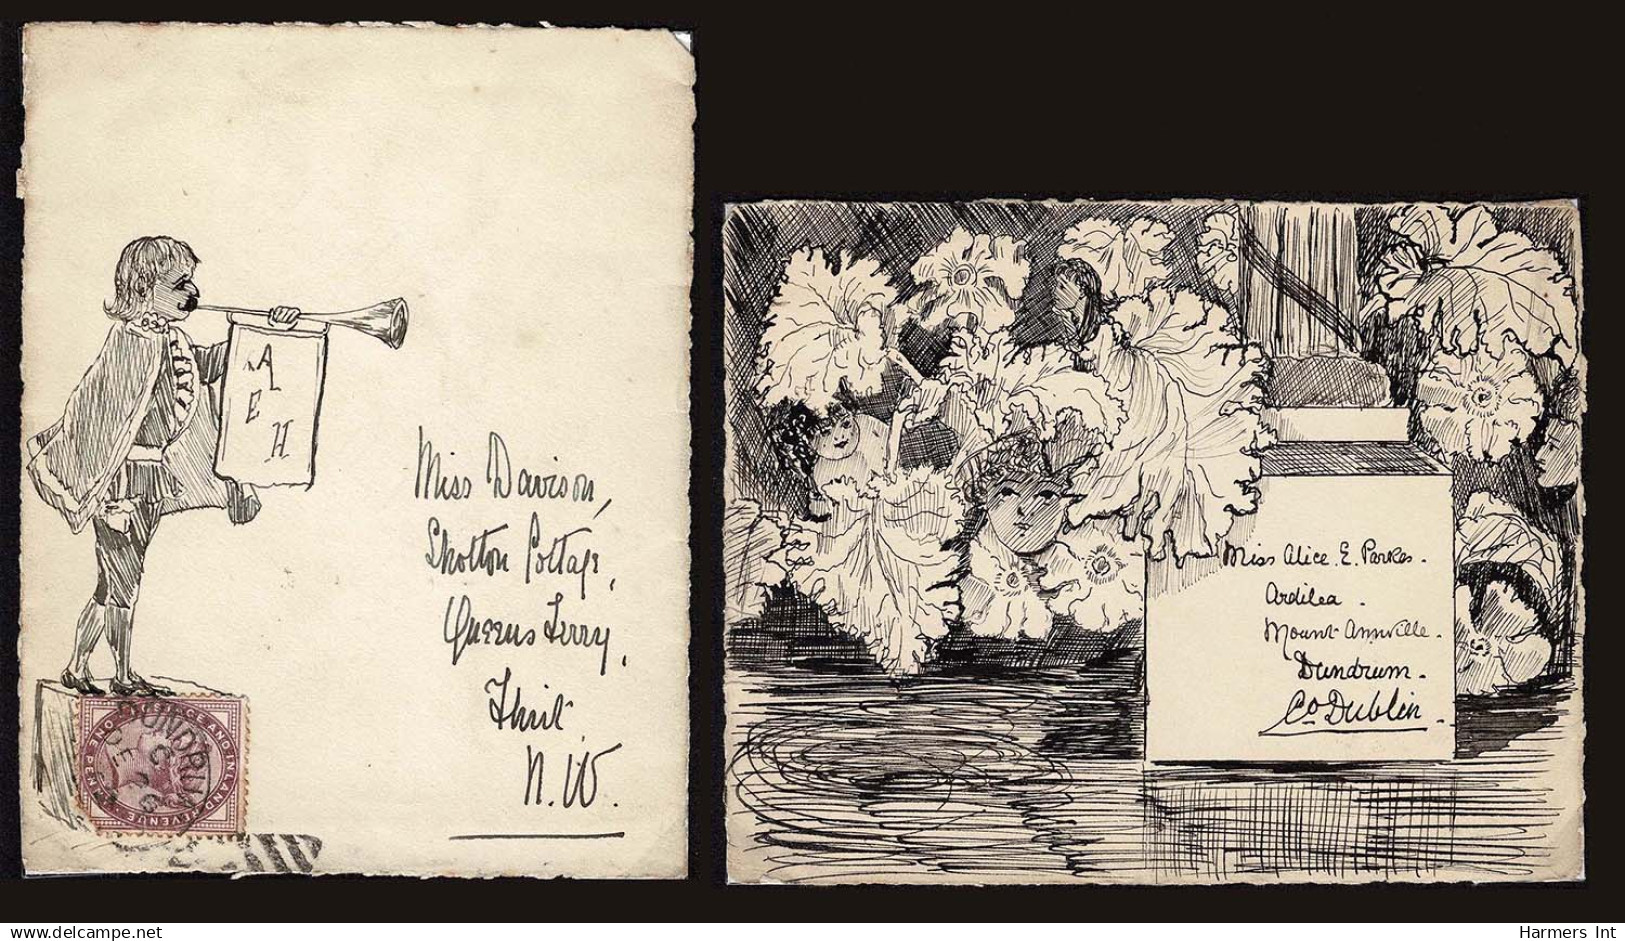 A
E
H
Miss Davison,
Shotton Cottage,
Queens Ferry,
Flint
N.W.
POSTAGE AND INLAND REVENUE ONE PENNY
DUNDRUM
DE
Miss Alice. E. Parkes.
Ardilea.
Mount Annville.
Dundrum.
Co Dublin.
Harmers Int